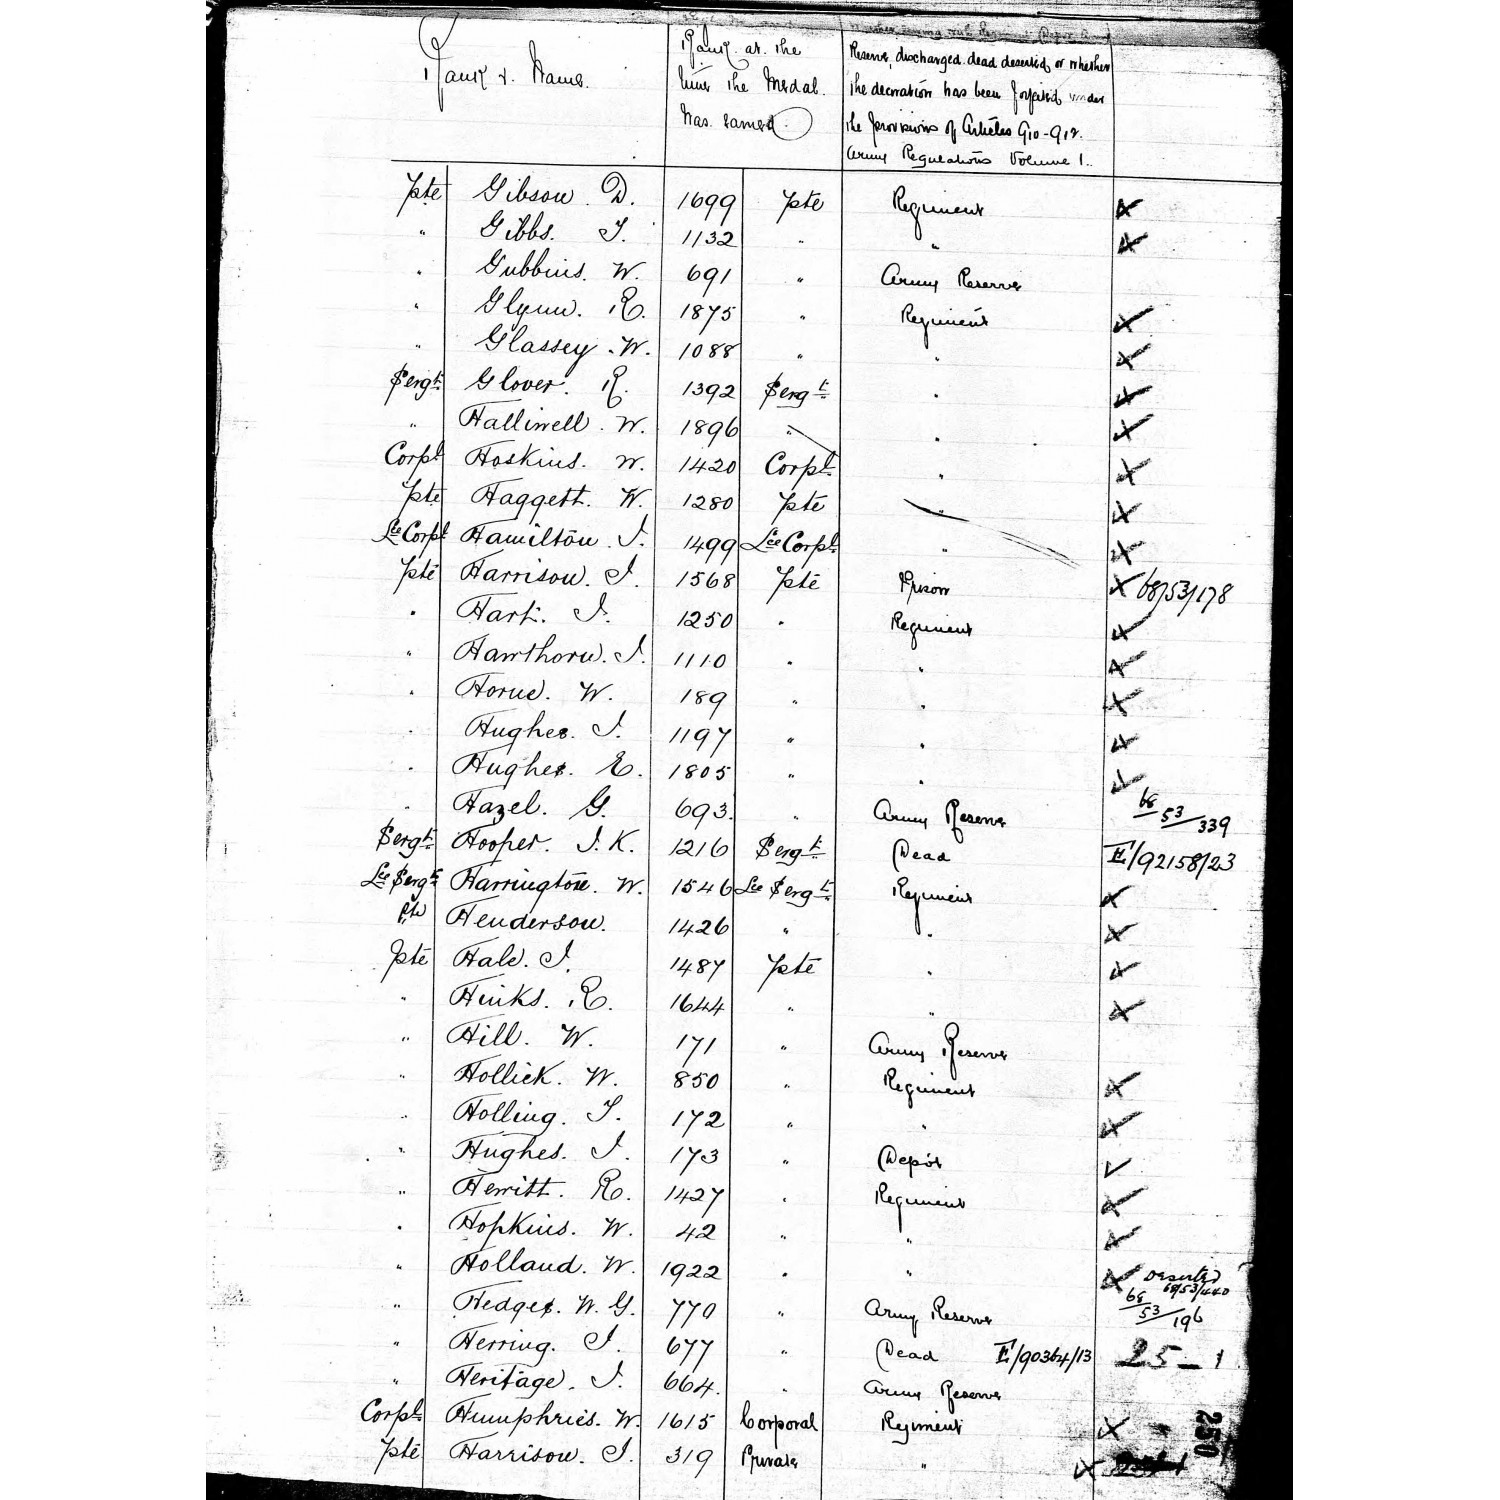 Rank & Name.
Rank at the time the Medal was earned.
Reserve, discharged dead deserted or whether
the decoration has been forfeited under
the provisions of Articles 910-912.
Army Regulations Volume 1.
Pte Gibson. D. 1699 Pte Regiment
" Gibbs. T. 1132 " "
" Gubbins. W. 691 " Army Reserve
" Glynn. R. 1875 " Regiment
" Glassey. W. 1088 " "
Sergt. Glover. R. 1392 Sergt. "
" Halliwell. W. 1896 " "
Corpl Hoskins. W. 1420 Corpl. "
Pte Haggett. W. 1280 Pte "
Lce Corpl Hamilton. J. 1499 Lce Corpl. "
Pte Harrison. J. 1568 Pte Prison 68/53/178
" Hart. J. 1250 " Regiment
" Hawthorn. J. 1110 " "
" Horne. W. 189 " "
" Hughes. J. 1197 " "
" Hughes. E. 1805 " "
" Hazel. G. 693. " Army Reserve 68/53/339
Sergt. Hooper. J. K. 1216 Sergt. Dead E/92158/23
Lce Sergt. Harrington. W. 1546 Lce Sergt. Regiment
Pte Henderson. 1426 " "
Pte Hale. J. 1487 Pte "
" Hinks. R. 1644 " "
" Hill. W. 171 " Army Reserve
" Hollick. W. 850 " Regiment
" Holling. T. 172 " "
" Hughes. J. 173 " Depôt
" Hewitt. R. 1427 " Regiment
" Hopkins. W. 42 " "
" Holland. W. 1922 " " Deserted 68/53/440
" Hedges. W. G. 770 " Army Reserve 68/53/196
" Herring. J. 677 " Dead E/90364/13 25-1
" Heritage. J. 664. " Army Reserve
Corpl. Humphries. W. 1615 Corporal Regiment
Pte Harrison. J. 319 Private "
250